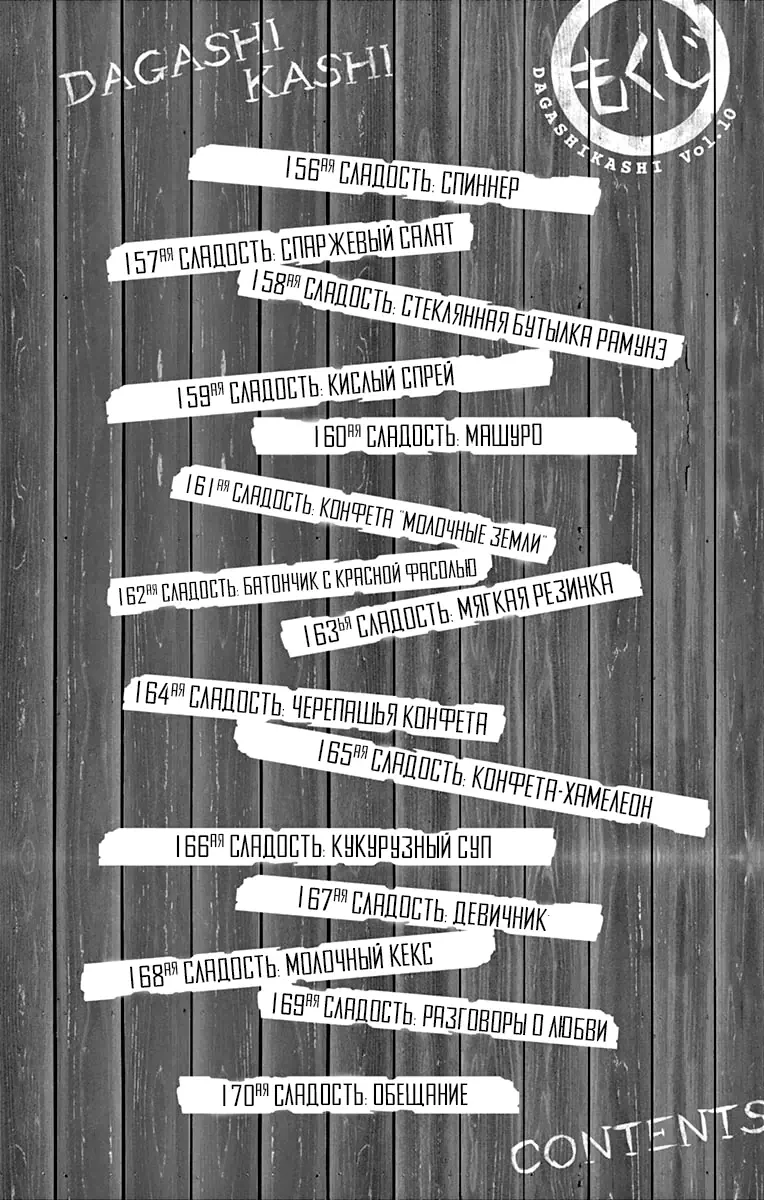 DAGASHI
KASHI
もくじ
DAGASHIKASHI Vol.10
156ая СЛАДОСТЬ: СПИННЕР
157ая СЛАДОСТЬ: СПАРЖЕВЫЙ САЛАТ
158ая СЛАДОСТЬ: СТЕКЛЯННАЯ БУТЫЛКА РАМУНЭ
159ая СЛАДОСТЬ: КИСЛЫЙ СПРЕЙ
160ая СЛАДОСТЬ: МАШУРО
161ая СЛАДОСТЬ: КОНФЕТА "МОЛОЧНЫЕ ЗЕМЛИ"
162ая СЛАДОСТЬ: БАТОНЧИК С КРАСНОЙ ФАСОЛЬЮ
163ья СЛАДОСТЬ: МЯГКАЯ РЕЗИНКА
164ая СЛАДОСТЬ: ЧЕРЕПАШЬЯ КОНФЕТА
165ая СЛАДОСТЬ: КОНФЕТА-ХАМЕЛЕОН
166ая СЛАДОСТЬ: КУКУРУЗНЫЙ СУП
167ая СЛАДОСТЬ: ДЕВИЧНИК
168ая СЛАДОСТЬ: МОЛОЧНЫЙ КЕКС
169ая СЛАДОСТЬ: РАЗГОВОРЫ О ЛЮБВИ
170ая СЛАДОСТЬ: ОБЕЩАНИЕ
CONTENTS